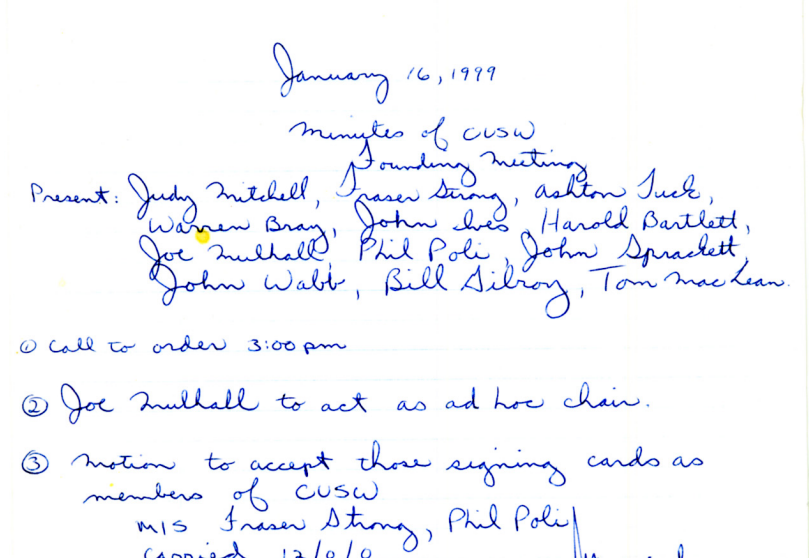 January 16, 1999
Minutes of CUSW
Founding Meeting
Present: Judy Mitchell, Fraser Strong, Ashton Tuck,
Warren Bray, John Ives, Harold Bartlett,
Joe Mulhall, Phil Poli, John Sprackett,
John Wabb, Bill Gilroy, Tom MacLean.
① Call to order 3:00 pm
② Joe Mulhall to act as ad hoc chair.
③ Motion to accept those signing cards as
members of CUSW
M/S Fraser Strong, Phil Poli
Carried 12/0/0